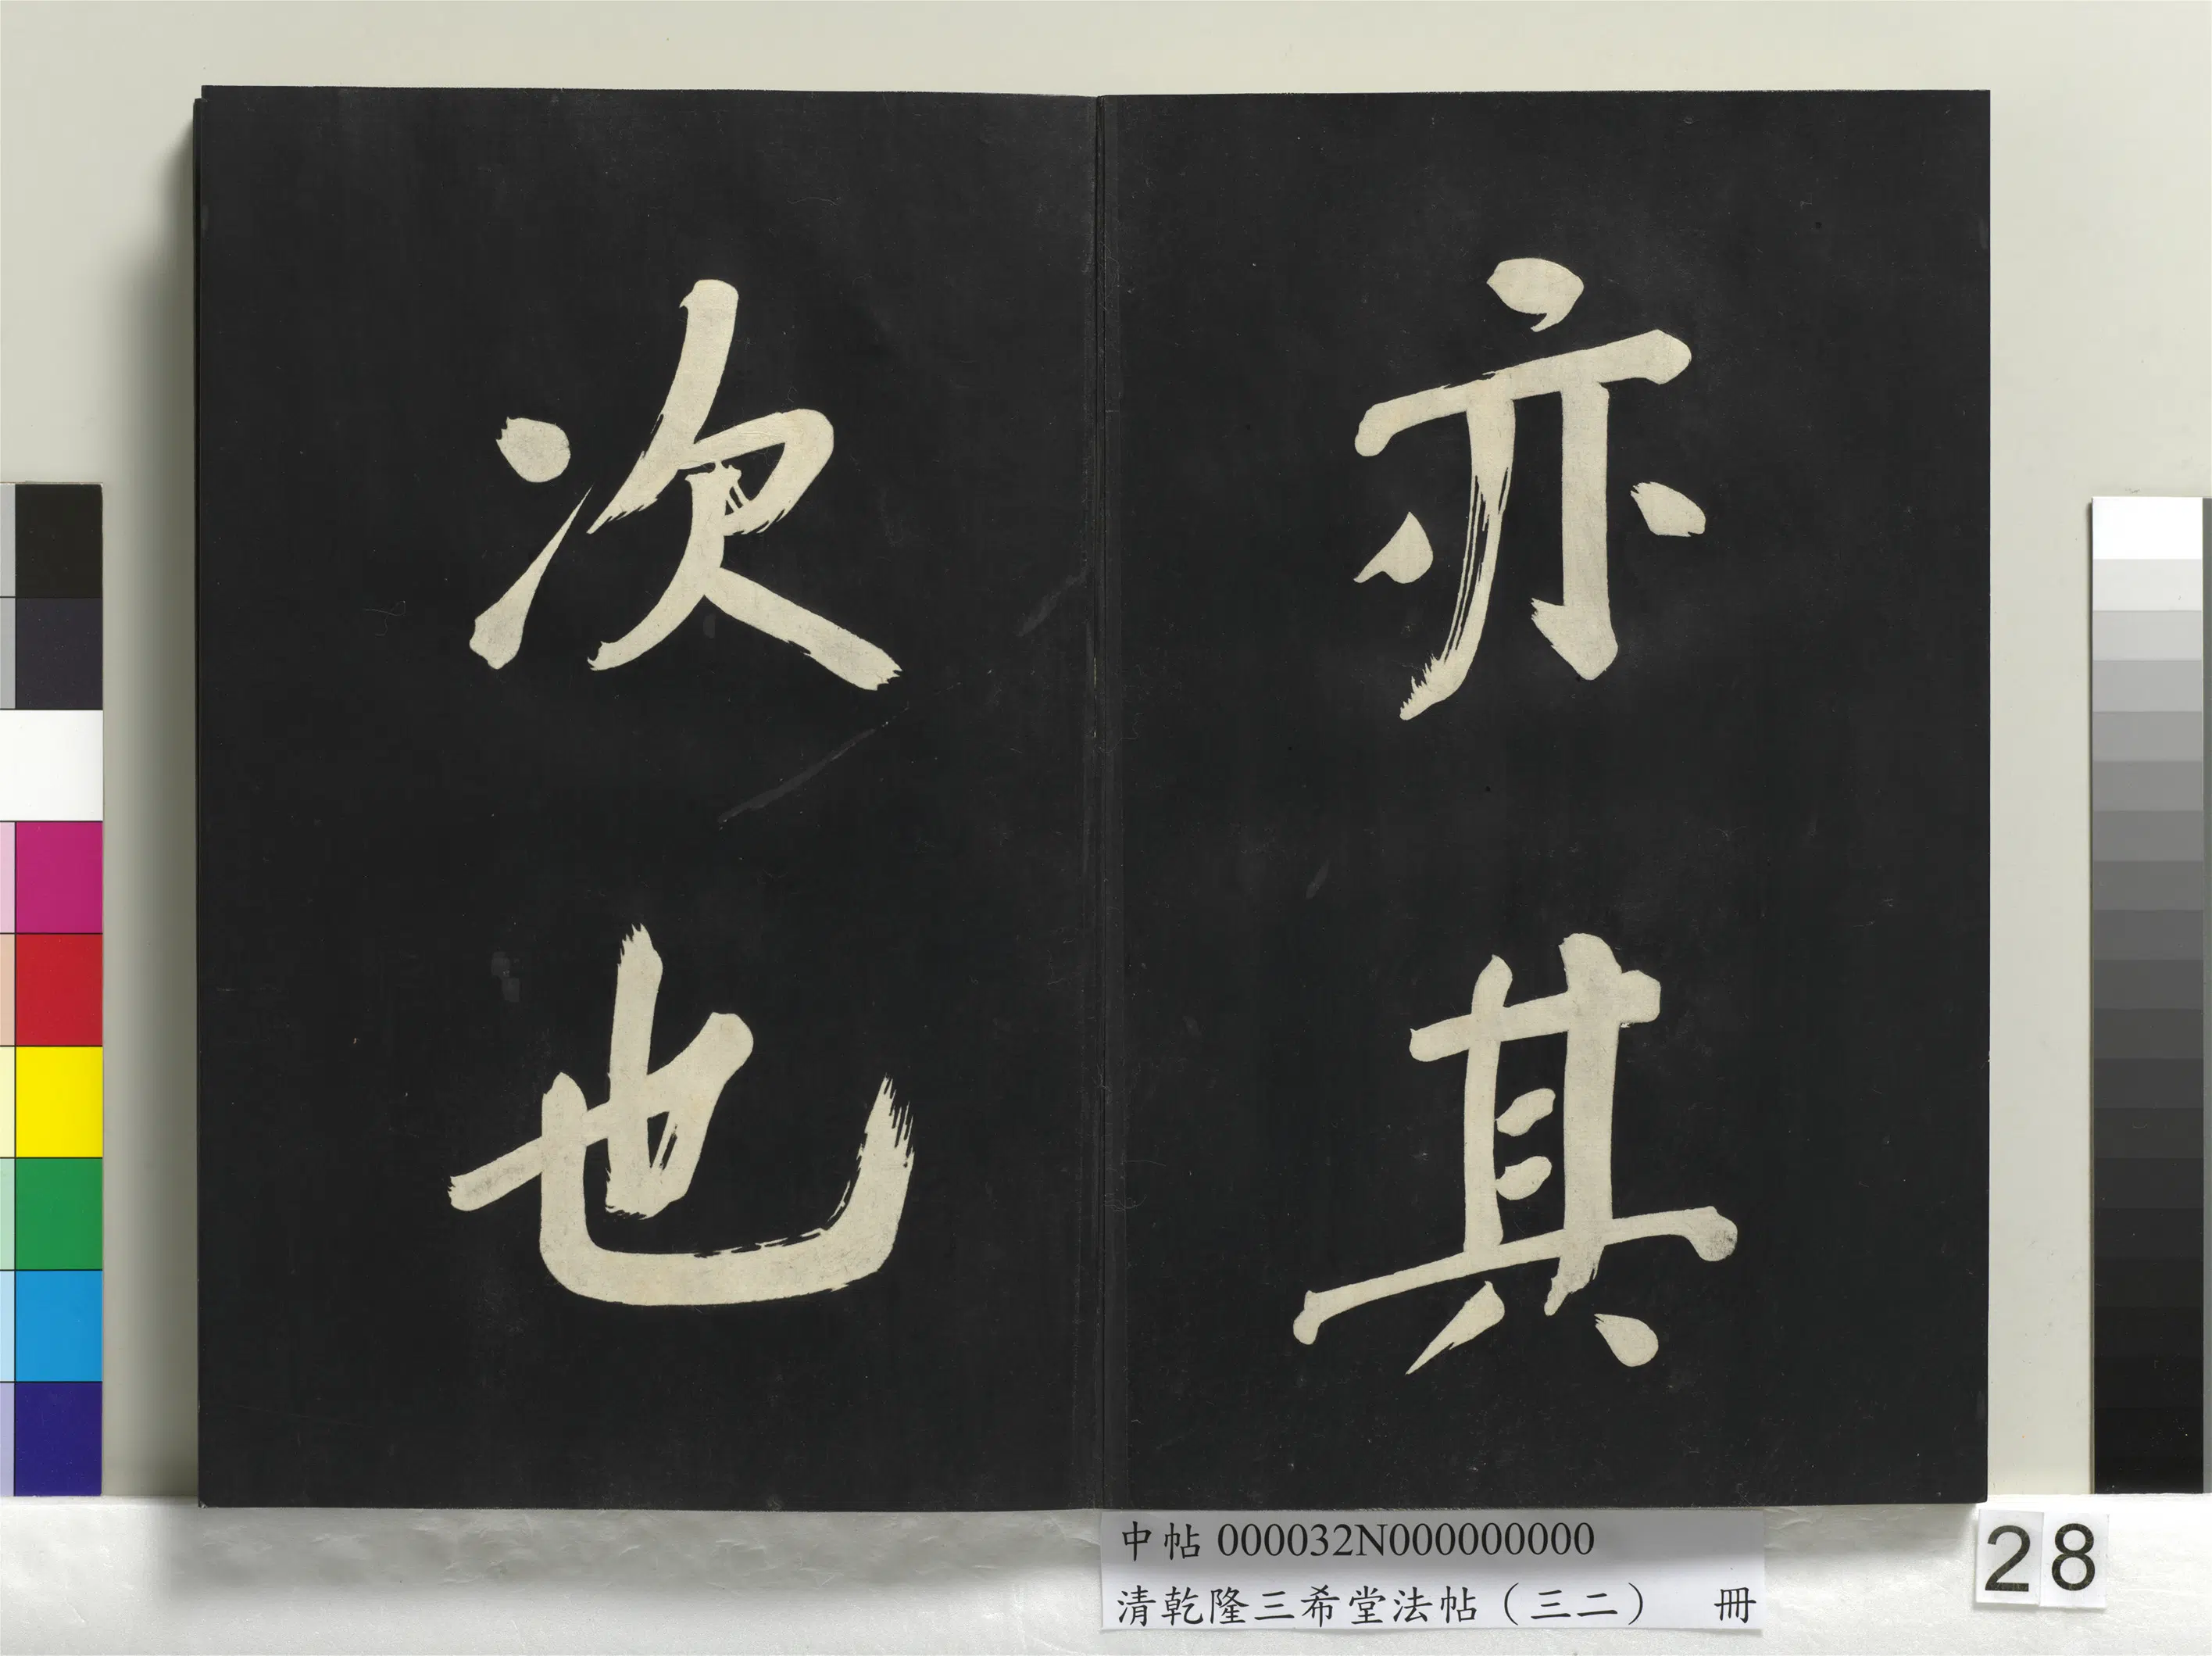 亦其
次也
中帖 000032N000000000
清乾隆三希堂法帖（三二） 冊
28